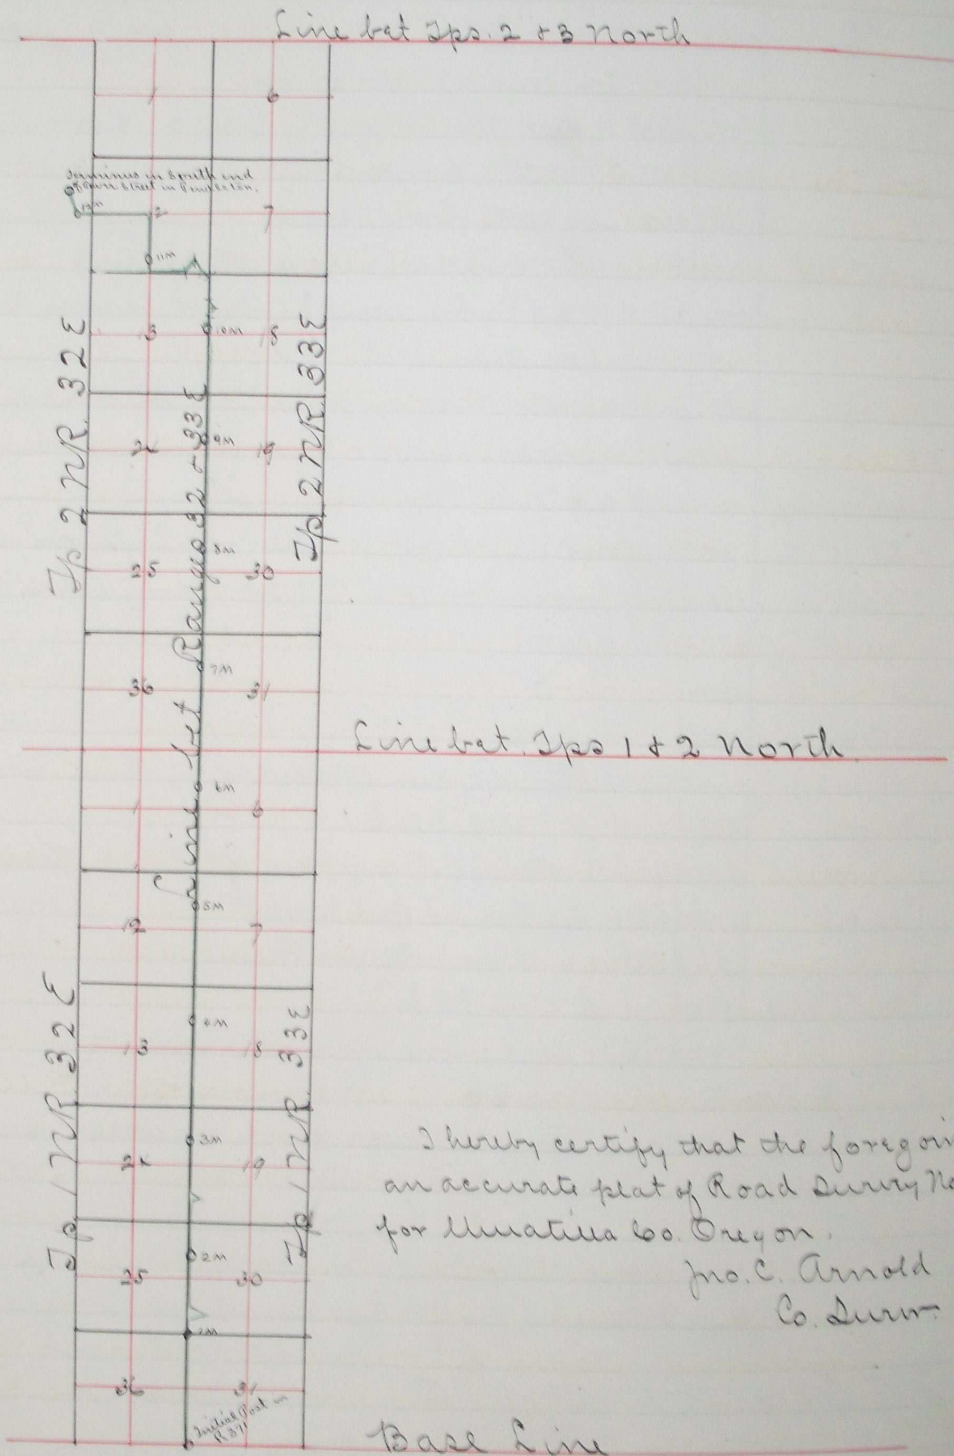 Line bet Tps. 2 & 3 North
1 6
Terminus in South end
of Main Street in Pendleton.
12M
12 7
11M
13 10M 18
Tp 2 N R. 32 E
Tp 2 N R. 33 E
Line bet Ranges 32 & 33 E
24 9M 19
8M
25 30
7M
36 31
Line bet. Tps 1 & 2 North
6M
1 6
5M
12 7
4M
13 18
Tp 1 N R. 32 E
Tp 1 N R. 33 E
3M
24 19
2M
25 30
1M
36 31
Initial Post in
R 371
Base Line
I hereby certify that the foregoin
an accurate plat of Road Survey No
for Umatilla Co. Oregon.
Jno. C. Arnold
Co. Surv.